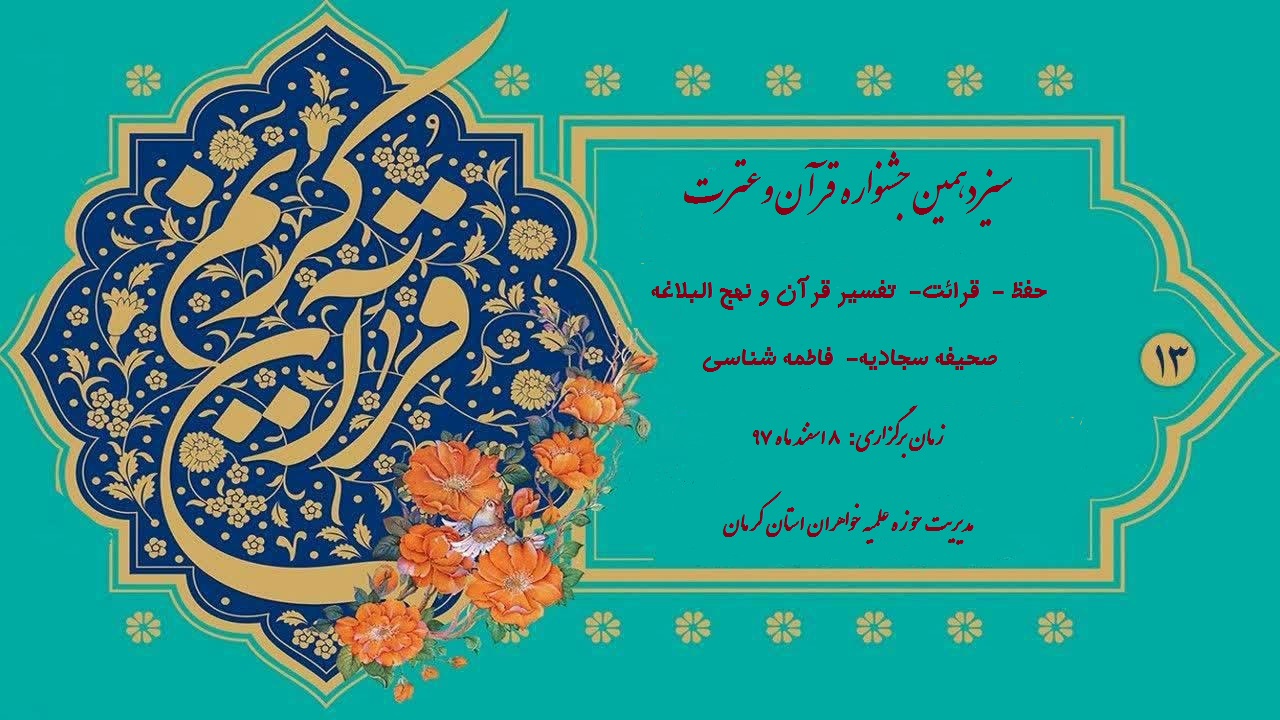 قرآن کریم
سیزدهمین جشنواره قرآن و عترت
حفظ - قرائت- تفسیر قرآن و نهج البلاغه
صحیفه سجادیه- فاطمه شناسی
زمان برگزاری: ۸ اسفند ماه ۹۷
مدیریت حوزه علمیه خواهران استان کرمان
۱۳